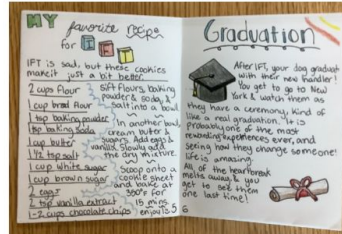 MY favorite recipe
for IFT
IFT is sad, but these cookies
make it just a bit better.
2 cups flour
1 cup bread flour
1 tsp baking powder
1 tsp baking soda
1 cup butter
1 1/2 tsp salt
1 cup white sugar
1 cup brown sugar
2 eggs
2 tsp vanilla extract
1-2 cups chocolate chips
Sift flours, baking
powder & soda, &
salt into a bowl
In another bowl,
cream butter &
sugars. Add eggs &
vanilla. Slowly add
the dry mixture.
Scoop onto a
cookie sheet
and bake at
350° for
15 mins.
enjoy!
5
Graduation
After IFT, your dog graduates
with their new handler!
You get to go to New
York & watch them as
they have a ceremony, kind of
like a real graduation. It is
probably one of the most
rewarding experiences ever, and
seeing how they change someone's
life is amazing.
All of the heartbreak
melts away, & you
get to see them
one last time!
6